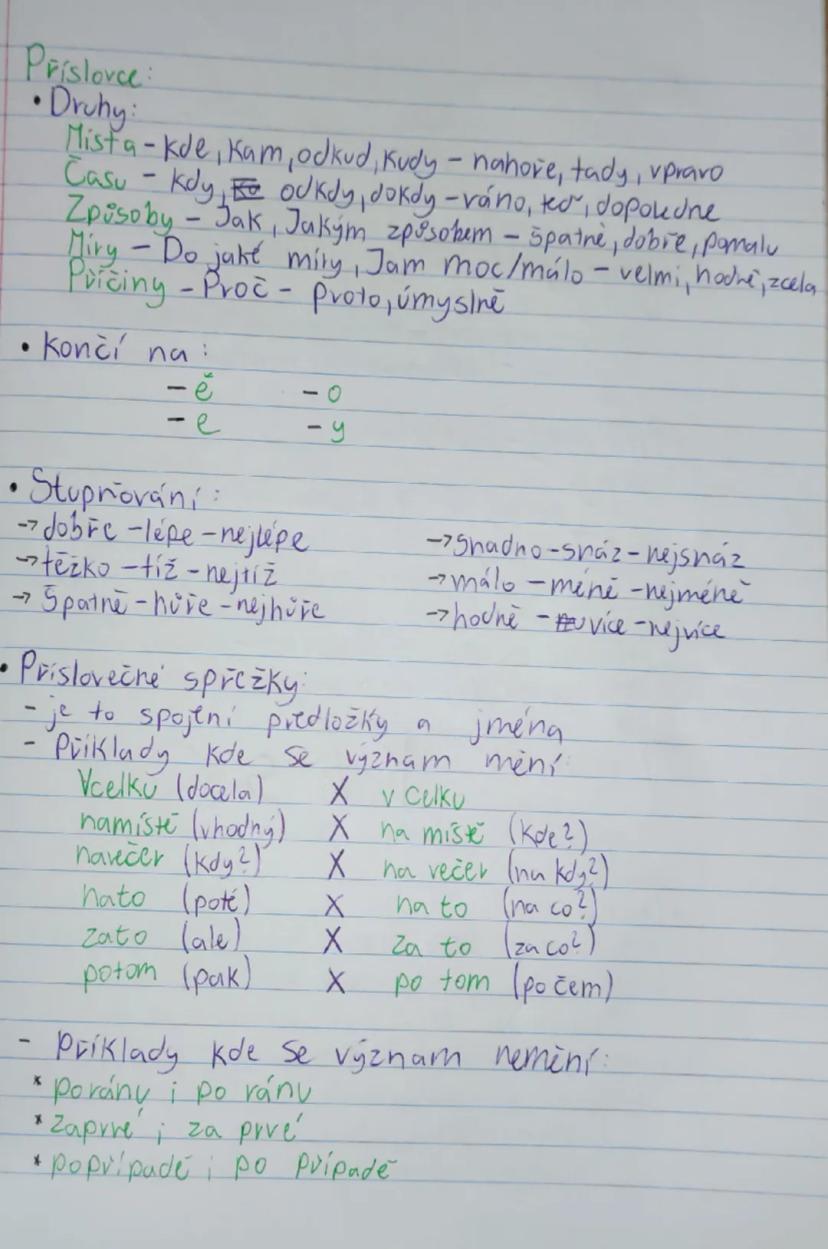 Příslovce:
• Druhy:
Místa - kde, kam, odkud, kudy - nahoře, tady, vpravo
Času - kdy, odkdy, dokdy - ráno, teď, dopoledne
Způsoby - Jak, Jakým způsobem - špatně, dobře, pomalu
Míry - Do jaké míry, Jam moc/málo - velmi, hodně, zcela
Příčiny - Proč - proto, úmyslně
• Končí na:
- ě - o
- e - y
• Stupňování:
→ dobře - lépe - nejlépe → snadno - snáz - nejsnáz
→ těžko - tíž - nejtíž → málo - méně - nejméně
→ špatně - hůře - nejhůře → hodně - více - nejvíce
• Příslovečné spřežky:
- je to spojení předložky a jména
- Příklady kde se význam mění:
Vcelku (docela) X v celku
namístě (vhodný) X na místě (kde?)
navečer (kdy?) X na večer (na kdy?)
nato (poté) X na to (na co?)
zato (ale) X za to (za co?)
potom (pak) X po tom (po čem)
- příklady kde se význam nemění:
* poránu i po ránu
* zaprvé i za prvé
* popřípadě i po případě